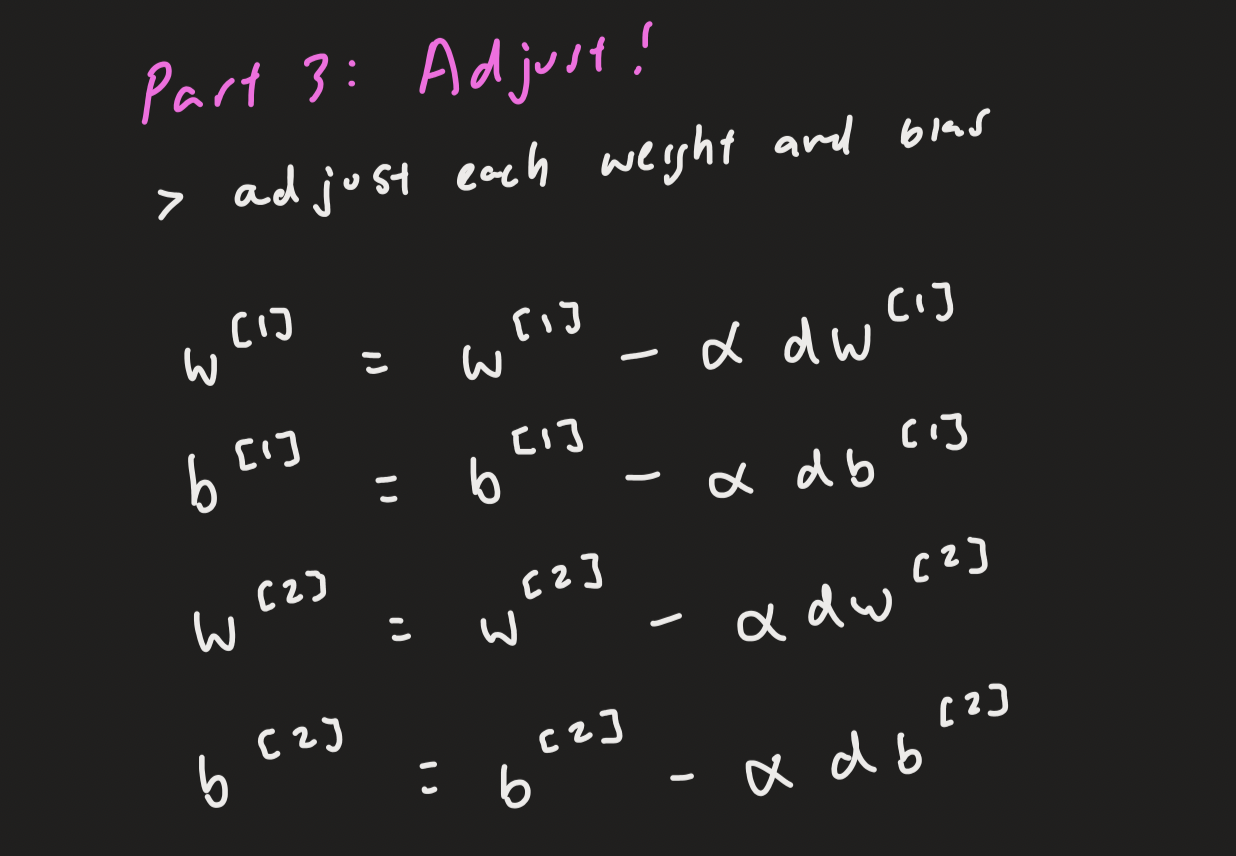 Part 3: Adjust!
> adjust each weight and bias
w^[1] = w^[1] - α dw^[1]
b^[1] = b^[1] - α db^[1]
w^[2] = w^[2] - α dw^[2]
b^[2] = b^[2] - α db^[2]